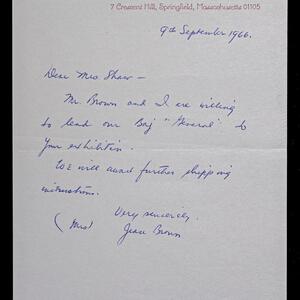 7 Crescent Hill, Springfield, Massachusetts 01105
9th September 1966.
Dear Mrs Shaw –
Mr. Brown and I are willing
to lend our Baj "General" to
your exhibition.
We will await further shipping
instructions.
Very sincerely,
(Mrs) Jean Brown